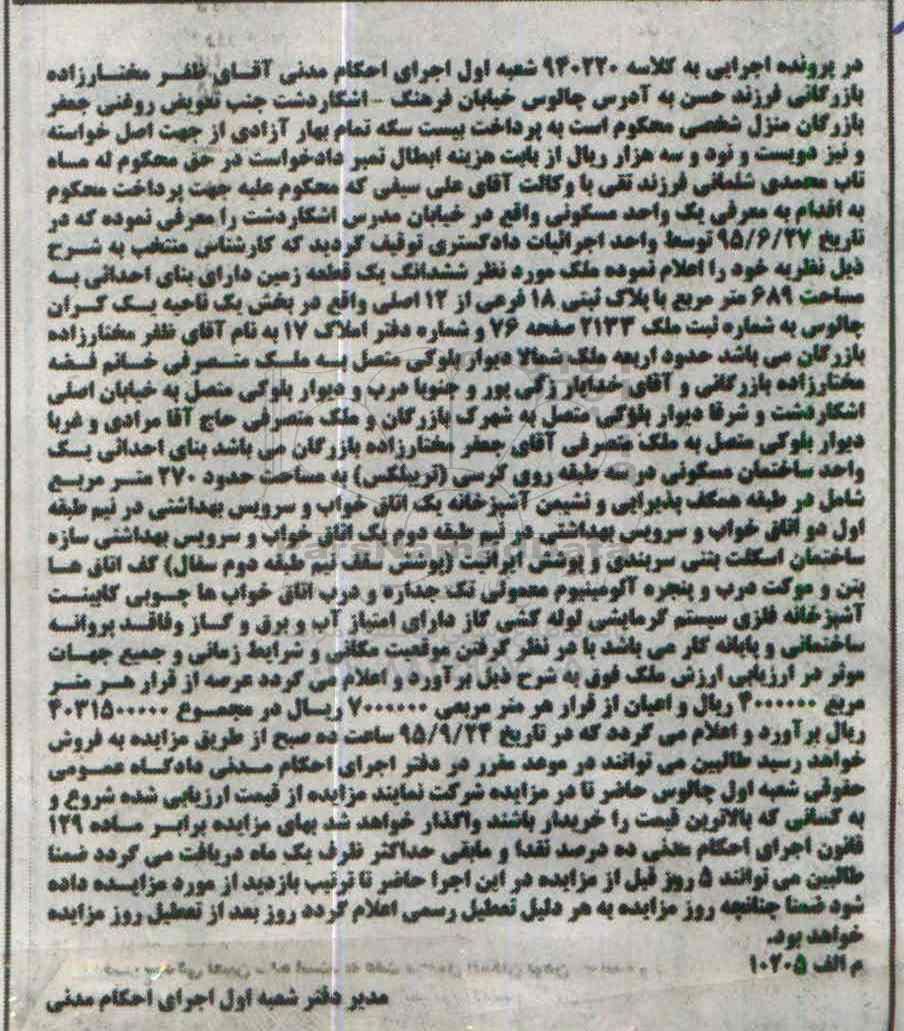 در پرونده اجرایی به کلاسه ۹۴۰۲۲۰ شعبه اول اجرای احکام مدنی آقای ظفر مختارزاده
بازرگانی فرزند حسن به آدرس چالوس خیابان فرهنگ - اشکاردشت جنب تعویض روغنی جعفر
بازرگان منزل شخصی محکوم است به پرداخت بیست سکه تمام بهار آزادی از جهت اصل خواسته
و نیز دویست و نود و سه هزار ریال از بابت هزینه ابطال تمبر دادخواست در حق محکوم له مساه
تاب محمدی شلمانی فرزند تقی با وکالت آقای علی سیفی که محکوم علیه جهت پرداخت محکوم
به اقدام به معرفی یک واحد مسکونی واقع در خیابان مدرس اشکاردشت را معرفی نموده که در
تاریخ ۹۵/۶/۲۷ توسط واحد اجرائیات دادگستری توقیف گردید که کارشناس منتخب به شرح
ذیل نظریه خود را اعلام نموده ملک مورد نظر ششدانگ یک قطعه زمین دارای بنای احداثی به
مساحت ۶۸۹ متر مربع با پلاک ثبتی ۱۸ فرعی از ۱۲ اصلی واقع در بخش یک ناحیه یک کران
چالوس به شماره ثبت ملک ۲۱۳۳ صفحه ۷۶ و شماره دفتر املاک ۱۷ به نام آقای ظفر مختارزاده
بازرگان می باشد حدود اربعه ملک شمالا دیوار بلوکی متصل به ملک متصرفی خانم فضه
مختارزاده بازرگانی و آقای خدایار زکی پور و جنوبا درب و دیوار بلوکی متصل به خیابان اصلی
اشکاردشت و شرقا دیوار بلوکی متصل به شهرک بازرگان و ملک متصرفی حاج آقا مرادی و غربا
دیوار بلوکی متصل به ملک متصرفی آقای جعفر مختارزاده بازرگان می باشد بنای احداثی یک
واحد ساختمان مسکونی در سه طبقه روی کرسی (تریبلکس) به مساحت حدود ۲۷۰ متر مربع
شامل در طبقه همکف پذیرایی و نشیمن آشپزخانه یک اتاق خواب و سرویس بهداشتی در نیم طبقه
اول دو اتاق خواب و سرویس بهداشتی در نیم طبقه دوم یک اتاق خواب و سرویس بهداشتی سازه
ساختمان اسکلت بتنی سربندی و پوشش ایرانیت (پوشش سقف نیم طبقه دوم سفال) کف اتاق ها
بتن و موکت درب و پنجره آلومینیوم معمولی تک جداره و درب اتاق خواب ها چوبی کابینت
آشپزخانه فلزی سیستم گرمایشی لوله کشی گاز دارای امتیاز آب و برق و گاز وفاقد پروانه
ساختمانی و پایانه کار می باشد با در نظر گرفتن موقعیت مکانی و شرایط زمانی و جمیع جهات
موثر در ارزیابی ارزش ملک فوق به شرح ذیل برآورد و اعلام می گردد عرصه از قرار هر متر
مربع ۴۰۰۰۰۰۰ ریال و اعیان از قرار هر متر مربعی ۷۰۰۰۰۰۰ ریال در مجموع ۴۰۳۱۵۰۰۰۰۰
ریال برآورد و اعلام می گردد که در تاریخ ۹۵/۹/۲۴ ساعت ده صبح از طریق مزایده به فروش
خواهد رسید طالبین می توانند در موعد مقرر در دفتر اجرای احکام مدنی دادگاه عمومی
حقوقی شعبه اول چالوس حاضر تا در مزایده شرکت نمایند مزایده از قیمت ارزیابی شده شروع و
به کسانی که بالاترین قیمت را خریدار باشند واگذار خواهد شد بهای مزایده برابر ماده ۱۲۹
قانون اجرای احکام مدنی ده درصد نقدا و مابقی حداکثر ظرف یک ماه دریافت می گردد ضمنا
طالبین می توانند ۵ روز قبل از مزایده در این اجرا حاضر تا ترتیب بازدید از مورد مزایده داده
شود ضمنا چنانچه روز مزایده به هر دلیل تعطیل رسمی اعلام گردد روز بعد از تعطیل روز مزایده
خواهد بود.
م الف ۱۰۲۰۵
مدیر دفتر شعبه اول اجرای احکام مدنی